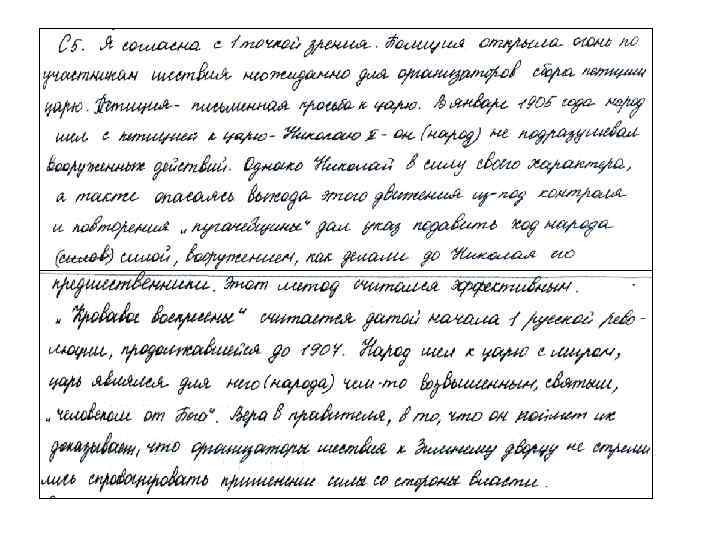 С5. Я согласна с 1 точкой зрения. Полиция открыла огонь по
участникам шествия неожиданно для организаторов сбора петиции
царю. Петиция - письменная просьба к царю. В январе 1905 года народ
шел с петицией к царю - Николаю II - он (народ) не подразумевал
вооруженных действий. Однако Николай в силу своего характера,
а также опасаясь выхода этого движения из-под контроля
и повторения „пугачевщины" дал указ подавить ход народа
(силов) силой, вооружением, как делали до Николая его
предшественники. Этот метод считался эффективным.
„Кровавое воскресенье" считается датой начала 1 русской рево-
люции, продолжавшейся до 1907. Народ шел к царю с миром,
царь являлся для него (народа) чем-то возвышенным, святым,
„человеком от Бога". Вера в правителя, в то, что он поймет их
доказывает, что организаторы шествия к Зимнему дворцу не стреми
лись спровоцировать применение силы со стороны власти.